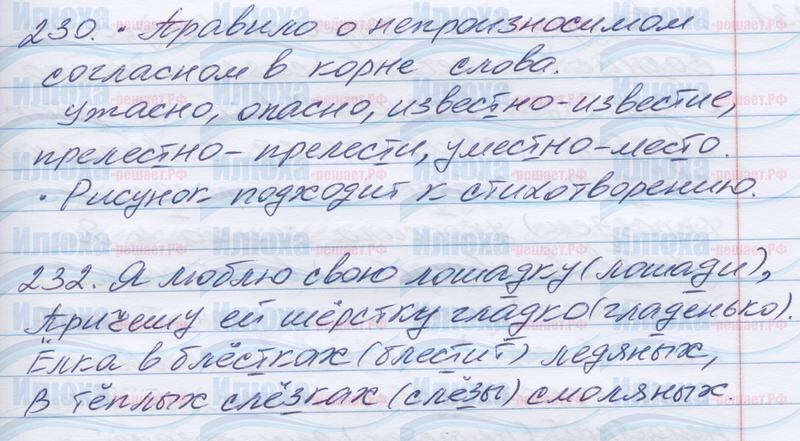 230. • Правило о непроизносимом
согласном в корне слова.
Ужасно, опасно, известно-известие,
прелестно-прелести, уместно-место.
• Рисунок подходит к стихотворению.
232. Я люблю свою лошадку (лошади),
Причешу ей шёрстку гладко (гладенько).
Ёлка в блёстках (блестит) ледяных,
В тёплых слёзках (слёзы) смоляных.